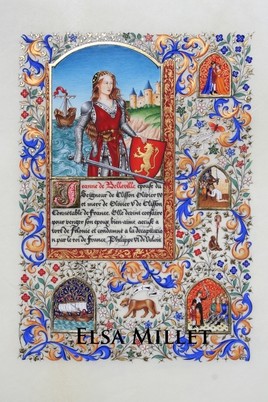 Jeanne de Belleville épouse du
Seigneur de Clisson Olivier IV
et mère de Olivier V de Clisson
Connétable de France. Elle devint corsaire
pour venger son époux bien-aimé accusé à
tort de félonie et condamné à la décapitation
par le roi de France, Philippe VI de Valois
Elsa Millet